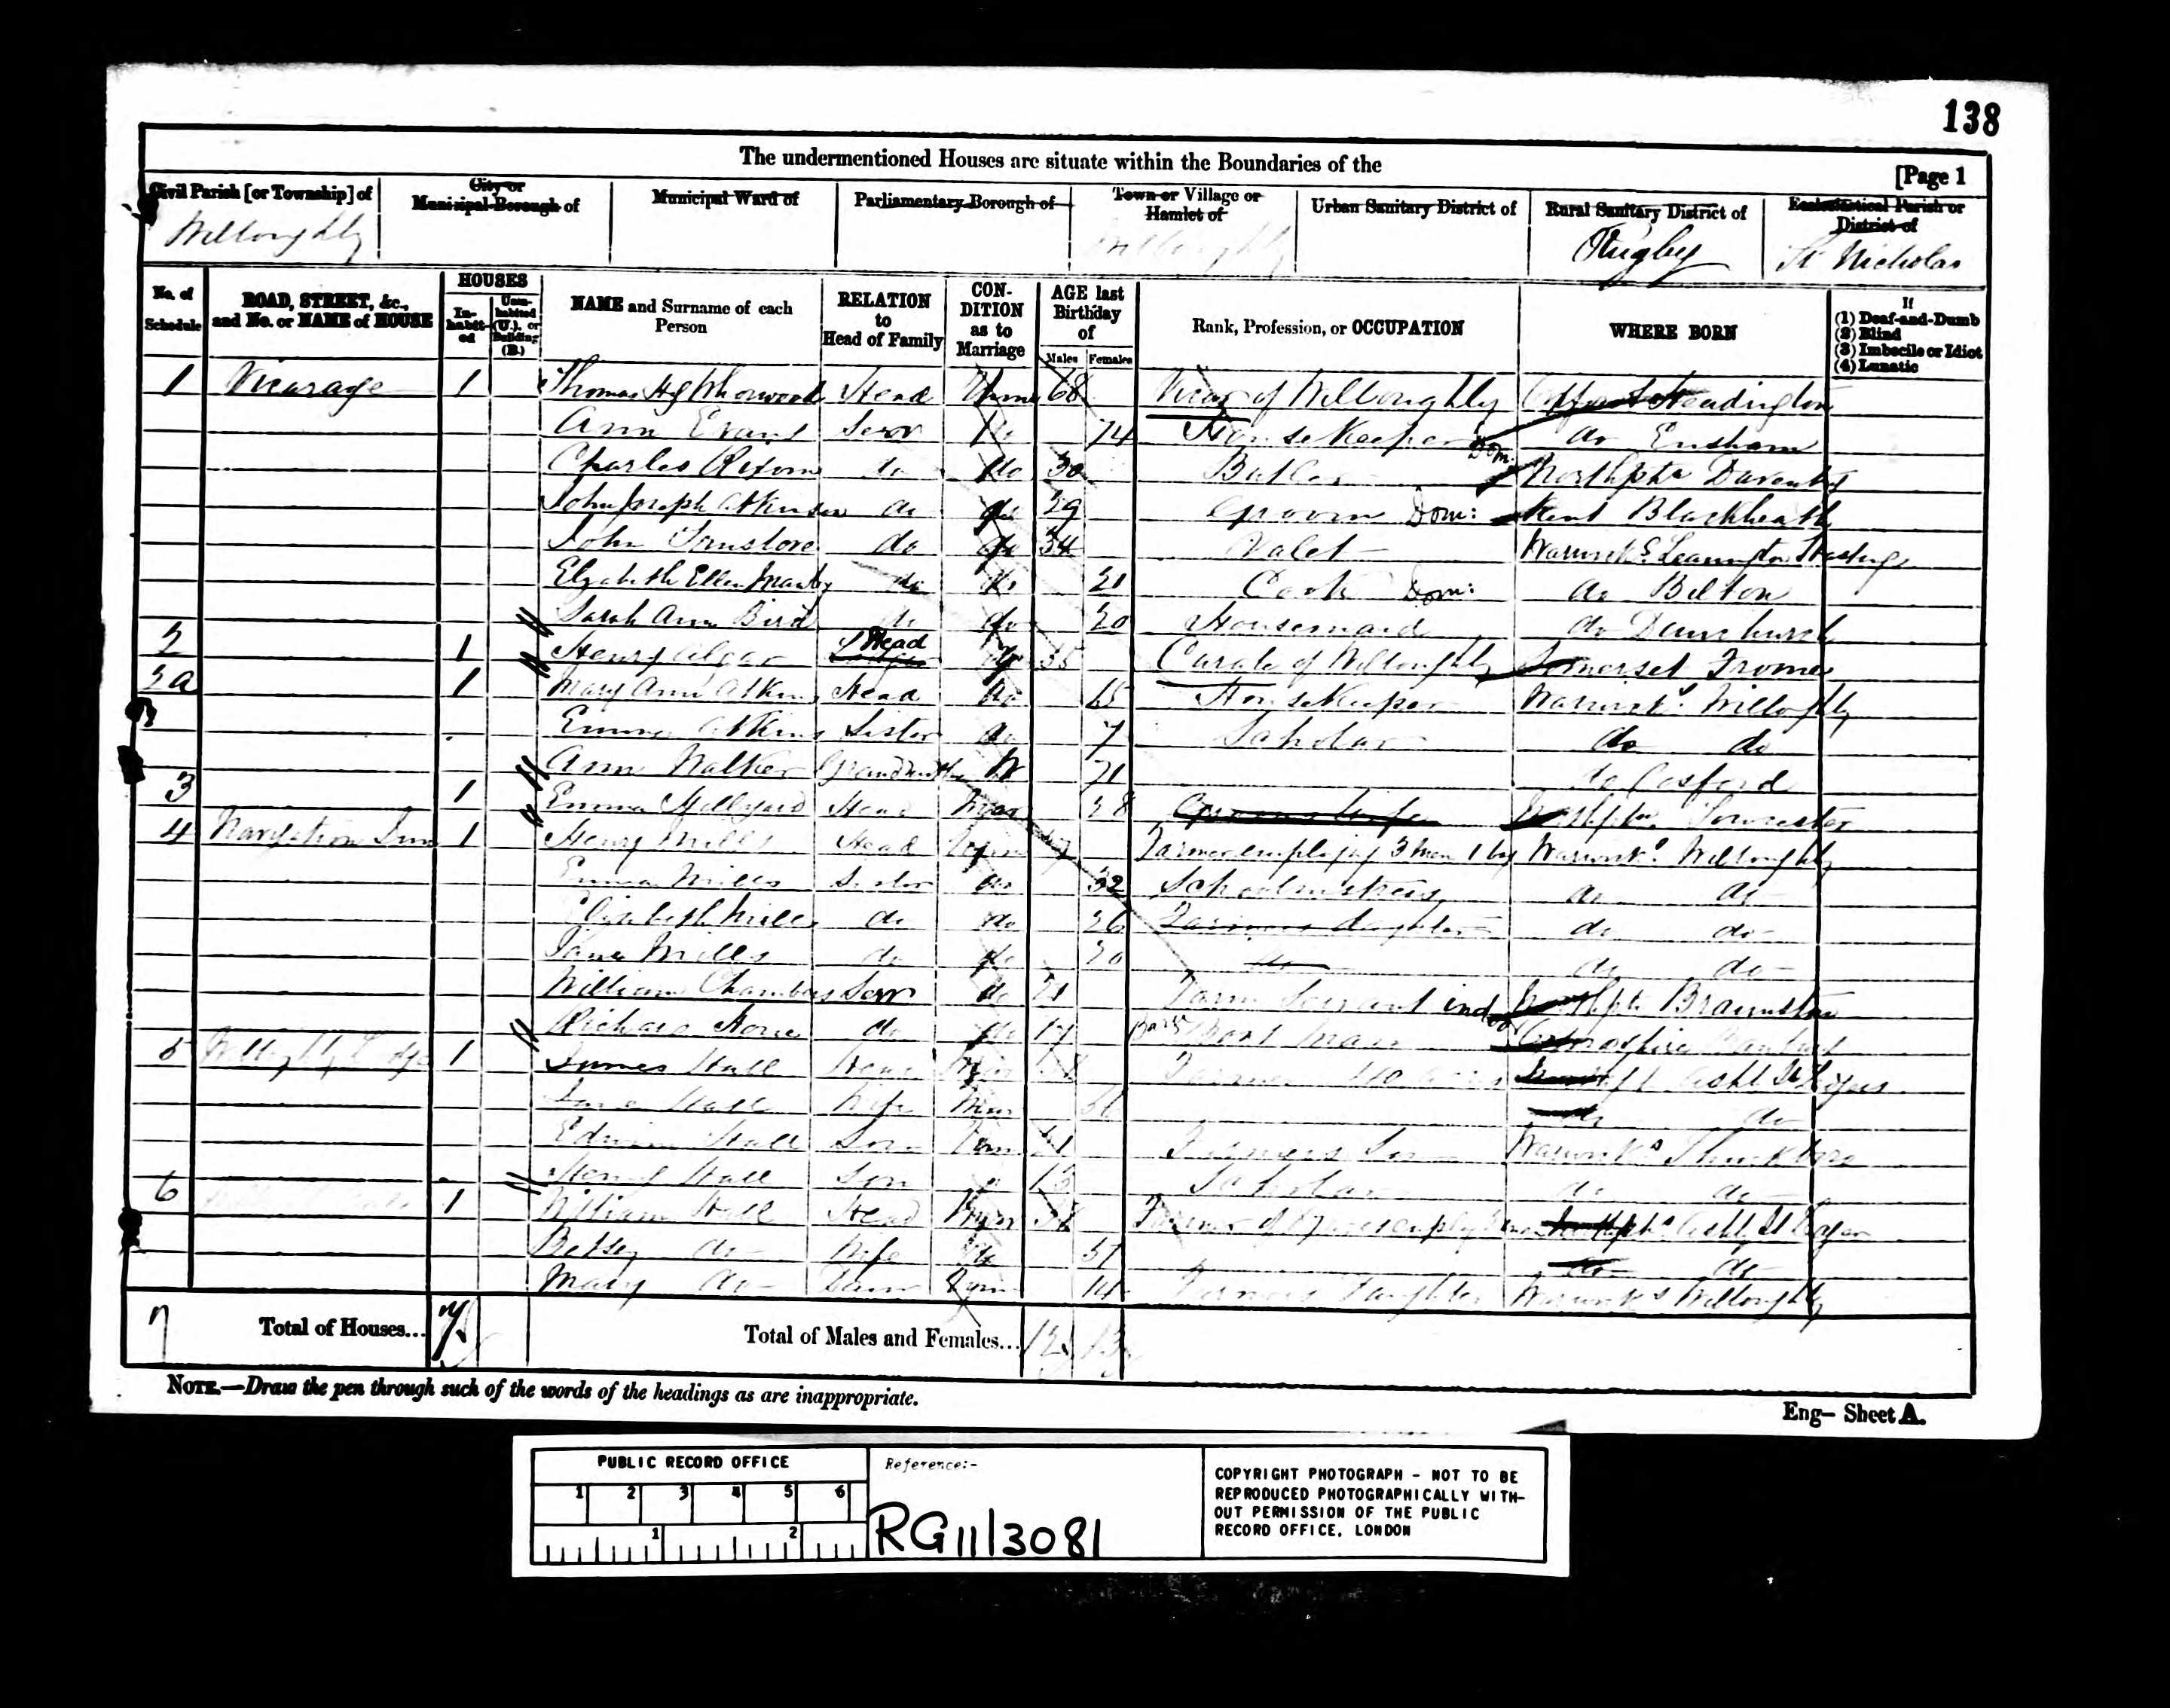 138
The undermentioned Houses are situate within the Boundaries of the
[Page 1
Civil Parish [or Township] of
City or Municipal Borough of
Municipal Ward of
Parliamentary Borough of
Town or Village or Hamlet of
Urban Sanitary District of
Rural Sanitary District of
Ecclesiastical Parish or District of
Willoughby
Willoughby
Rugby
St Nicholas
No. of Schedule
ROAD, STREET, &c., and No. or NAME of HOUSE
HOUSES
In-habit-ed
Unin-habited (U.), or Building (B.)
NAME and Surname of each Person
RELATION to Head of Family
CON-DITION as to Marriage
AGE last Birthday of
Males Females
Rank, Profession, or OCCUPATION
WHERE BORN
If
(1) Deaf-and-Dumb
(2) Blind
(3) Imbecile or Idiot
(4) Lunatic
1 Vicarage 1 Thomas Head 68 Vicar of Willoughby Headington
Ann Evans Serv 74 Housekeeper Dom: do Ensham
Charles do do 30 Butler Northptn Daventry
John Joseph Atkinson do do 29 Groom Dom: Kent Blackheath
John do do 34 Valet Warwicks Leamington Hastings
Elizabeth Ellen do do 21 Cook Dom: do Bilton
Sarah Ann Bird do do 20 Housemaid do Dunchurch
2 1 Henry Algar Head do 35 Curate of Willoughby Somerset Frome
2a 1 Mary Ann Atkins Head do 15 Housekeeper Warwicks Willoughby
Emma Atkins Sister do 7 Scholar do do
Ann Walker Grandmother W 71 do Cosford
3 1 Emma Hillyard Head Mar 28 Grooms Wife Northptn Towcester
4 Navigation Inn 1 Henry Mills Head Unm Farmer employing 3 men 1 boy Warwicks Willoughby
Emma Mills Sister do 32 Schoolmistress do do
Elizabeth Mills do do 26 Farmers daughter do do
Jane Mills do do 20 do do do
William Chambers Serv do 21 Farm Servant indoor Northptn Braunston
Richard do do 17 Boat man
5 Willoughby Lodge 1 James Hall Head Mar Farmer Ashby St Legers
Hall Wife Mar do do
Edwin Hall Son Unm 21 Farmers Son Warwicks
Henry Hall Son 13 Scholar do do
6 1 William Hall Head Mar Farmer of Northptn Ashby St Legers
Betsy do Wife do do do
Mary do Daur Unm 14 Farmers Daughter Warwicks Willoughby
7 Total of Houses... 7
Total of Males and Females... 12 13
NOTE.—Draw the pen through such of the words of the headings as are inappropriate.
Eng- Sheet A.
PUBLIC RECORD OFFICE
1 2 3 4 5 6
1 2
Reference:-
RG11/3081
COPYRIGHT PHOTOGRAPH - NOT TO BE
REPRODUCED PHOTOGRAPHICALLY WITH-
OUT PERMISSION OF THE PUBLIC
RECORD OFFICE, LONDON